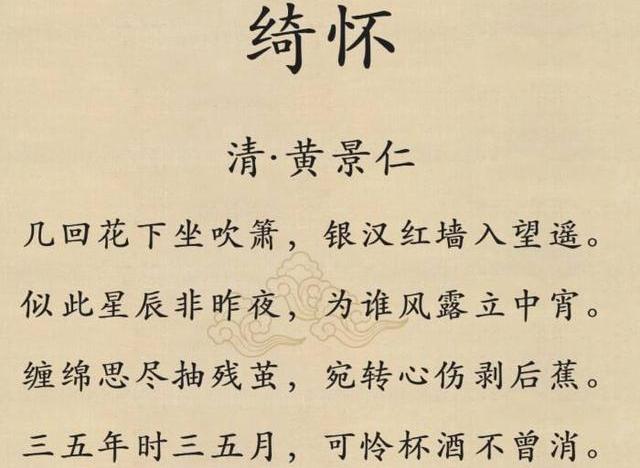 绮怀
清·黄景仁
几回花下坐吹箫，银汉红墙入望遥。
似此星辰非昨夜，为谁风露立中宵。
缠绵思尽抽残茧，宛转心伤剥后蕉。
三五年时三五月，可怜杯酒不曾消。